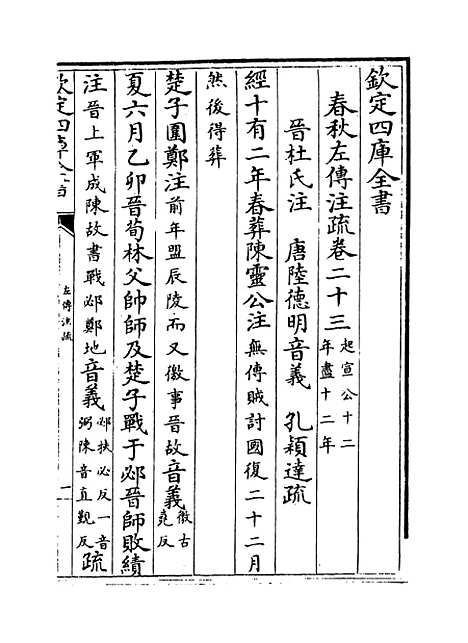 欽定四庫全書
春秋左傳注疏卷二十三起宣公十二年盡十二年
晉杜氏注　唐陸德明音義　孔穎達疏
經十有二年春葬陳靈公注無傳賊討國復二十二月
然後得葬
楚子圍鄭注前年盟辰陵而又徼事晉故音義徼古堯反
夏六月乙卯晉荀林父帥師及楚子戰于邲晉師敗績
注晉上軍成陳故書戰邲鄭地音義邲扶必反一音弼陳音直覲反疏
欽定四庫全書
左傳注疏
一